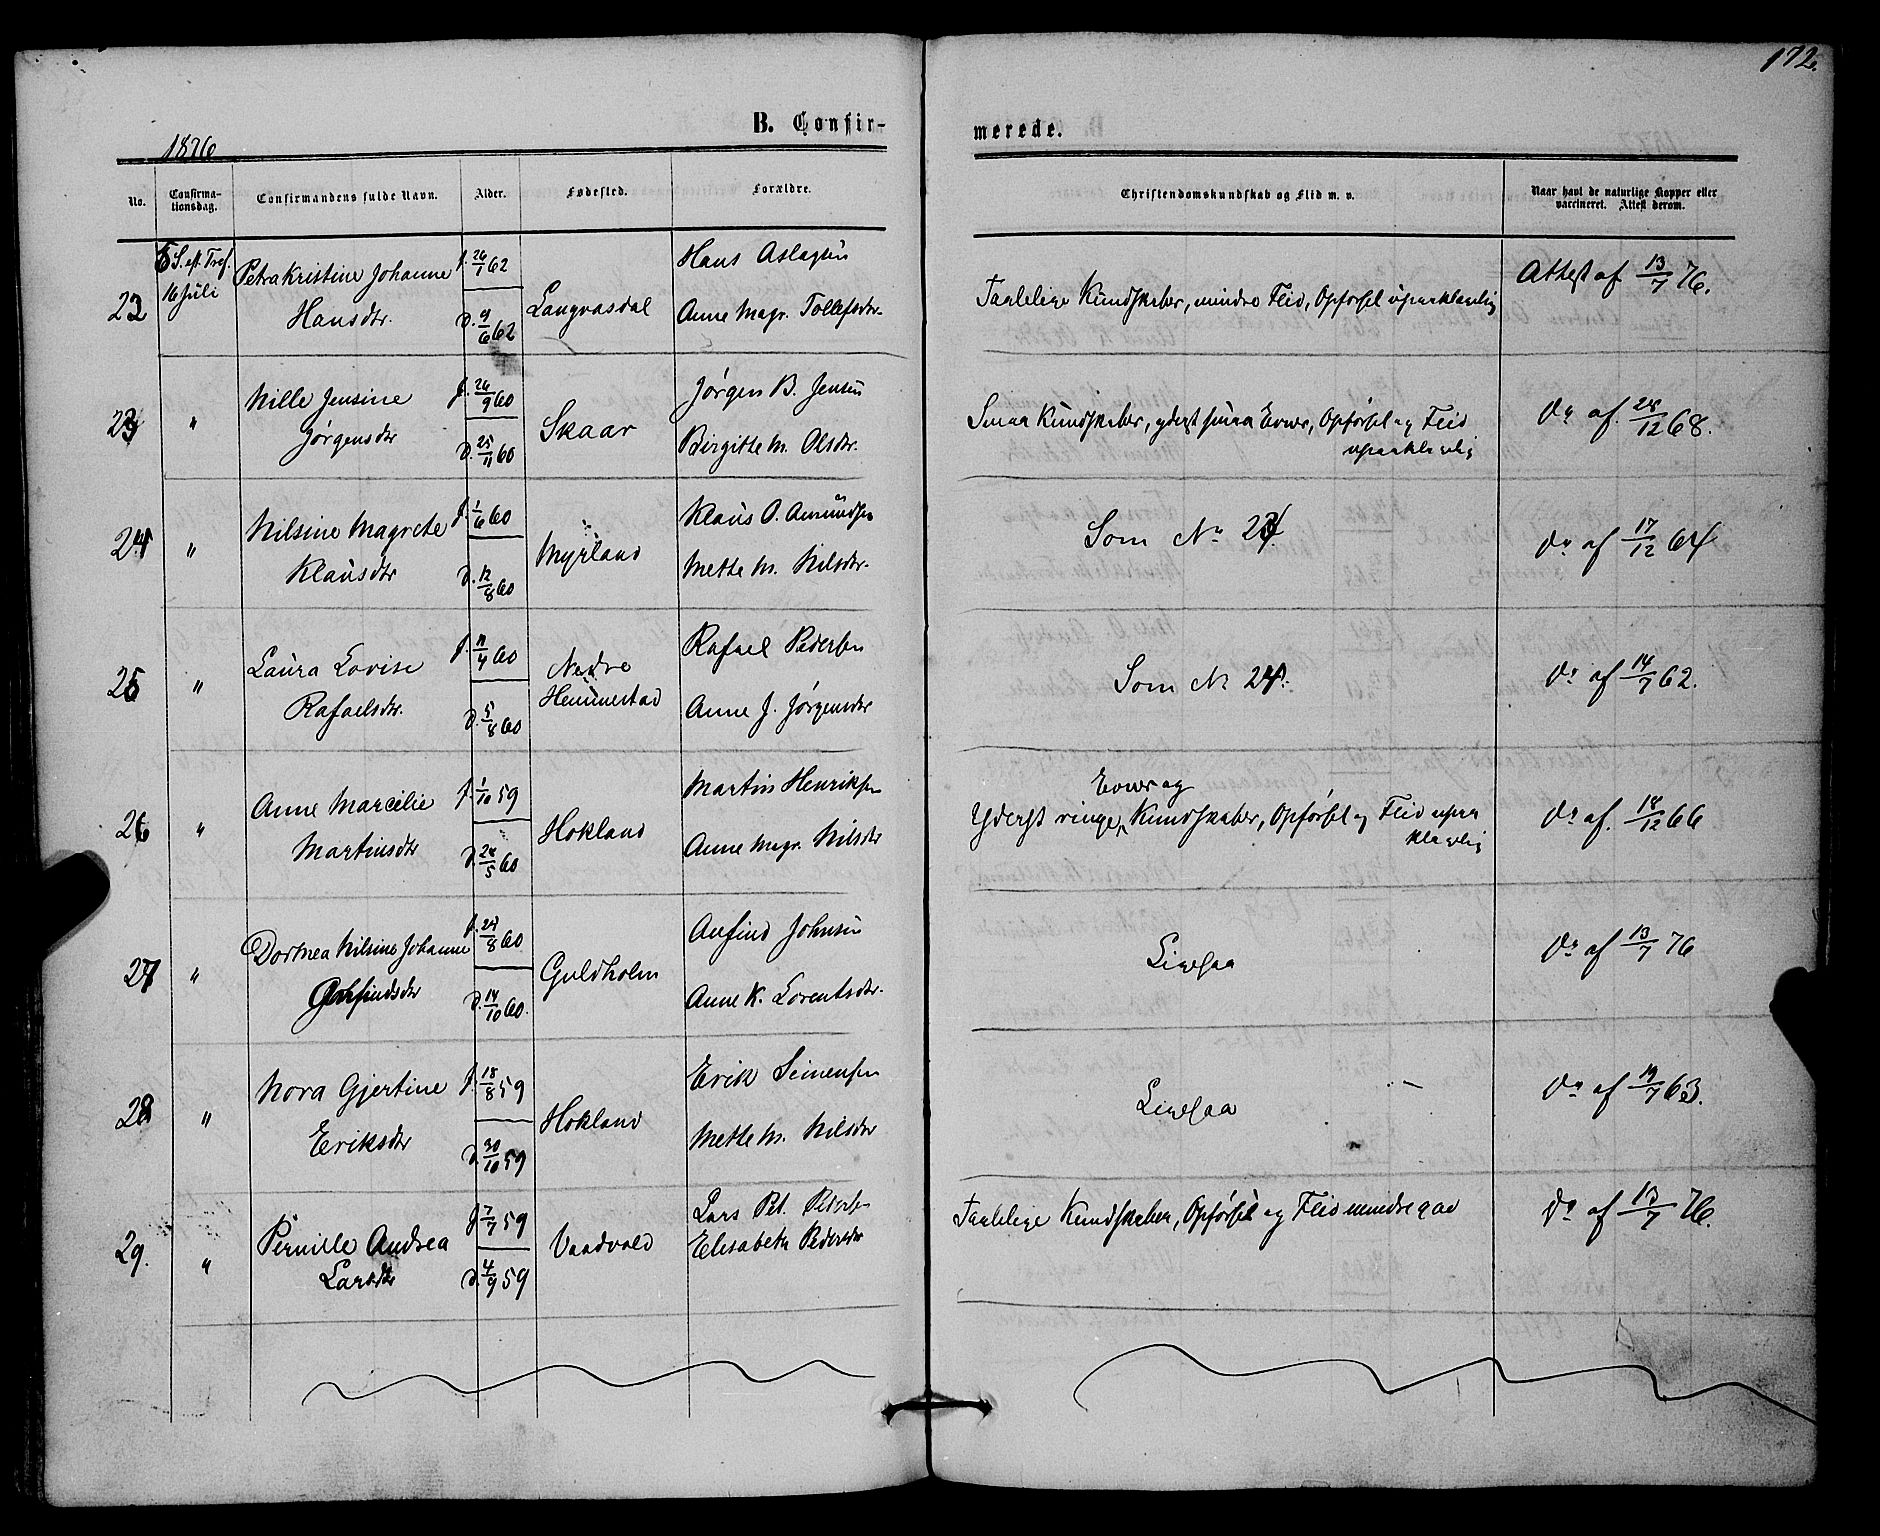 172.
1876
B. Confirmerede.
No. Confirmationsdag. Confirmandens fulde Navn. Alder. Fødested. Forældre. Christendomskundskab og Flid m. v. Naar havt de naturlige Kopper eller vaccineret. Attest derom.
22 S. eft. Tref. 16 Juli Petra Kristine Johanne f. 26/1 62 Hans Aslagsen
Hansdtr. d. 9/6 62 Langvasdal Anne Magr. Tollefsdtr. Taalelige Kundskaber, mindre Flid, Opførsel upaaklagelig Attest af 13/7 76.
23 " Nille Jensine f. 26/9 60 Jørgen B. Jensen
Jørgensdtr d. 25/11 60 Skaar Birgitte M. Olsdtr. Smaa Kundskaber, yderst smaa Evner, Opførsel og Flid
upaaklagelig Do af 28/12 68.
24 " Nilsine Magrete f. 1/6 60 Klaus O. Amundsen
Klausdtr d. 12/8 60 Myrland Mette M. Nilsdtr. Som No 23 Do af 17/12 64
25 " Laura Lovise f. 11/4 60 Nedre Rafael Pedersen
Rafaelsdtr. d. 5/8 60 Hemmestad Anne J. Jørgensdtr Som No 24. Do af 14/7 62.
26 " Anne Marcelie f. 1/10 59 Martin Henriksen Evner og
Martinsdtr d. 28/5 60 Hokland Anne Magr. Nilsdtr Yderst ringe Kundskaber, Opførsel og Flid upaa
klagelig Do af. 18/12 66
27 " Dortnea Nilsine Johanne f. 29/8 60 Anfind Johnsen
Anfindsdtr d. 14/10 60. Guldholm Anne K. Lorentsdtr. Ligesaa Do af 13/7 76
28 " Nora Gjertine f. 18/8 59 Erik Simensen
Eriksdtr d. 30/10 59 Hokland Mette M. Nilsdtr Ligesaa Do af 19/7 63.
29. " Pernille Andrea f. 7/7 59 Lars Pet. Pedersen
Larsdtr d. 4/9 59 Vaadvold Elisabeth Pedersdtr Taalelige Kundskaber, Opførsel og Flid mindre god Do af 13/7 76.